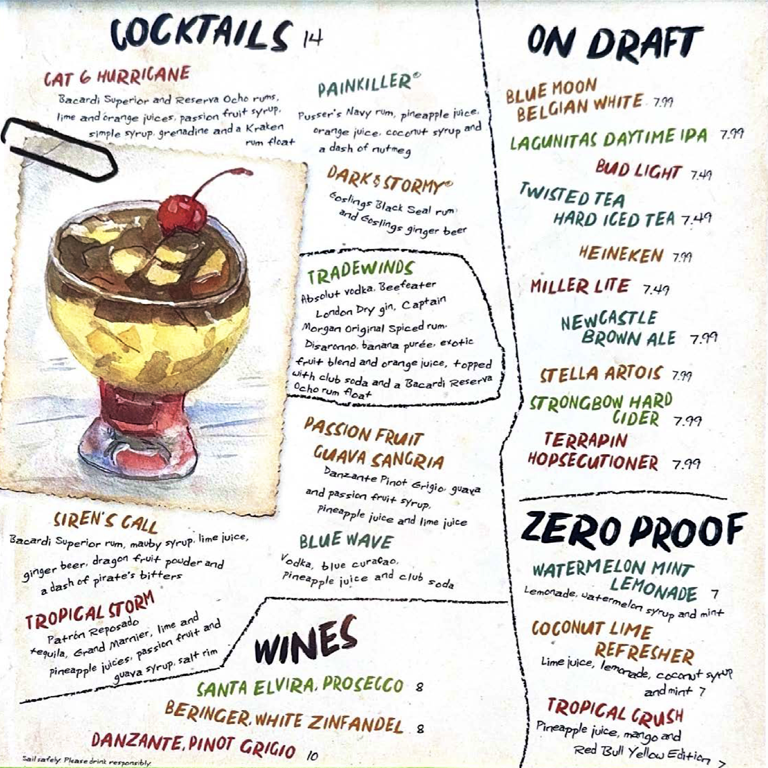 COCKTAILS 14
CAT 6 HURRICANE
Bacardi Superior and Reserva Ocho rums,
lime and orange juices, passion fruit syrup,
simple syrup, grenadine and a Kraken
rum float
PAINKILLER®
Pusser's Navy rum, pineapple juice,
orange juice, coconut syrup and
a dash of nutmeg
DARK & STORMY®
Goslings Black Seal rum
and Goslings ginger beer
TRADEWINDS
Absolut vodka, Beefeater
London Dry gin, Captain
Morgan Original Spiced rum,
Disaronno, banana purée, exotic
fruit blend and orange juice, topped
with club soda and a Bacardi Reserva
Ocho rum float
PASSION FRUIT
GUAVA SANGRIA
Danzante Pinot Grigio, guava
and passion fruit syrup,
pineapple juice and lime juice
SIREN'S CALL
Bacardi Superior rum, mauby syrup, lime juice,
ginger beer, dragon fruit powder and
a dash of pirate's bitters
BLUE WAVE
Vodka, blue curaçao,
pineapple juice and club soda
TROPICAL STORM
Patrón Reposado
tequila, Grand Marnier, lime and
pineapple juices, passion fruit and
guava syrup, salt rim
WINES
SANTA ELVIRA, PROSECCO 8
BERINGER, WHITE ZINFANDEL 8
DANZANTE, PINOT GRIGIO 10
Sail safely. Please drink responsibly.
ON DRAFT
BLUE MOON
BELGIAN WHITE 7.99
LAGUNITAS DAYTIME IPA 7.99
BUD LIGHT 7.49
TWISTED TEA
HARD ICED TEA 7.49
HEINEKEN 7.99
MILLER LITE 7.49
NEWCASTLE
BROWN ALE 7.99
STELLA ARTOIS 7.99
STRONGBOW HARD
CIDER 7.99
TERRAPIN
HOPSECUTIONER 7.99
ZERO PROOF
WATERMELON MINT
LEMONADE 7
Lemonade, watermelon syrup and mint
COCONUT LIME
REFRESHER
Lime juice, lemonade, coconut syrup
and mint 7
TROPICAL CRUSH
Pineapple juice, mango and
Red Bull Yellow Edition 7